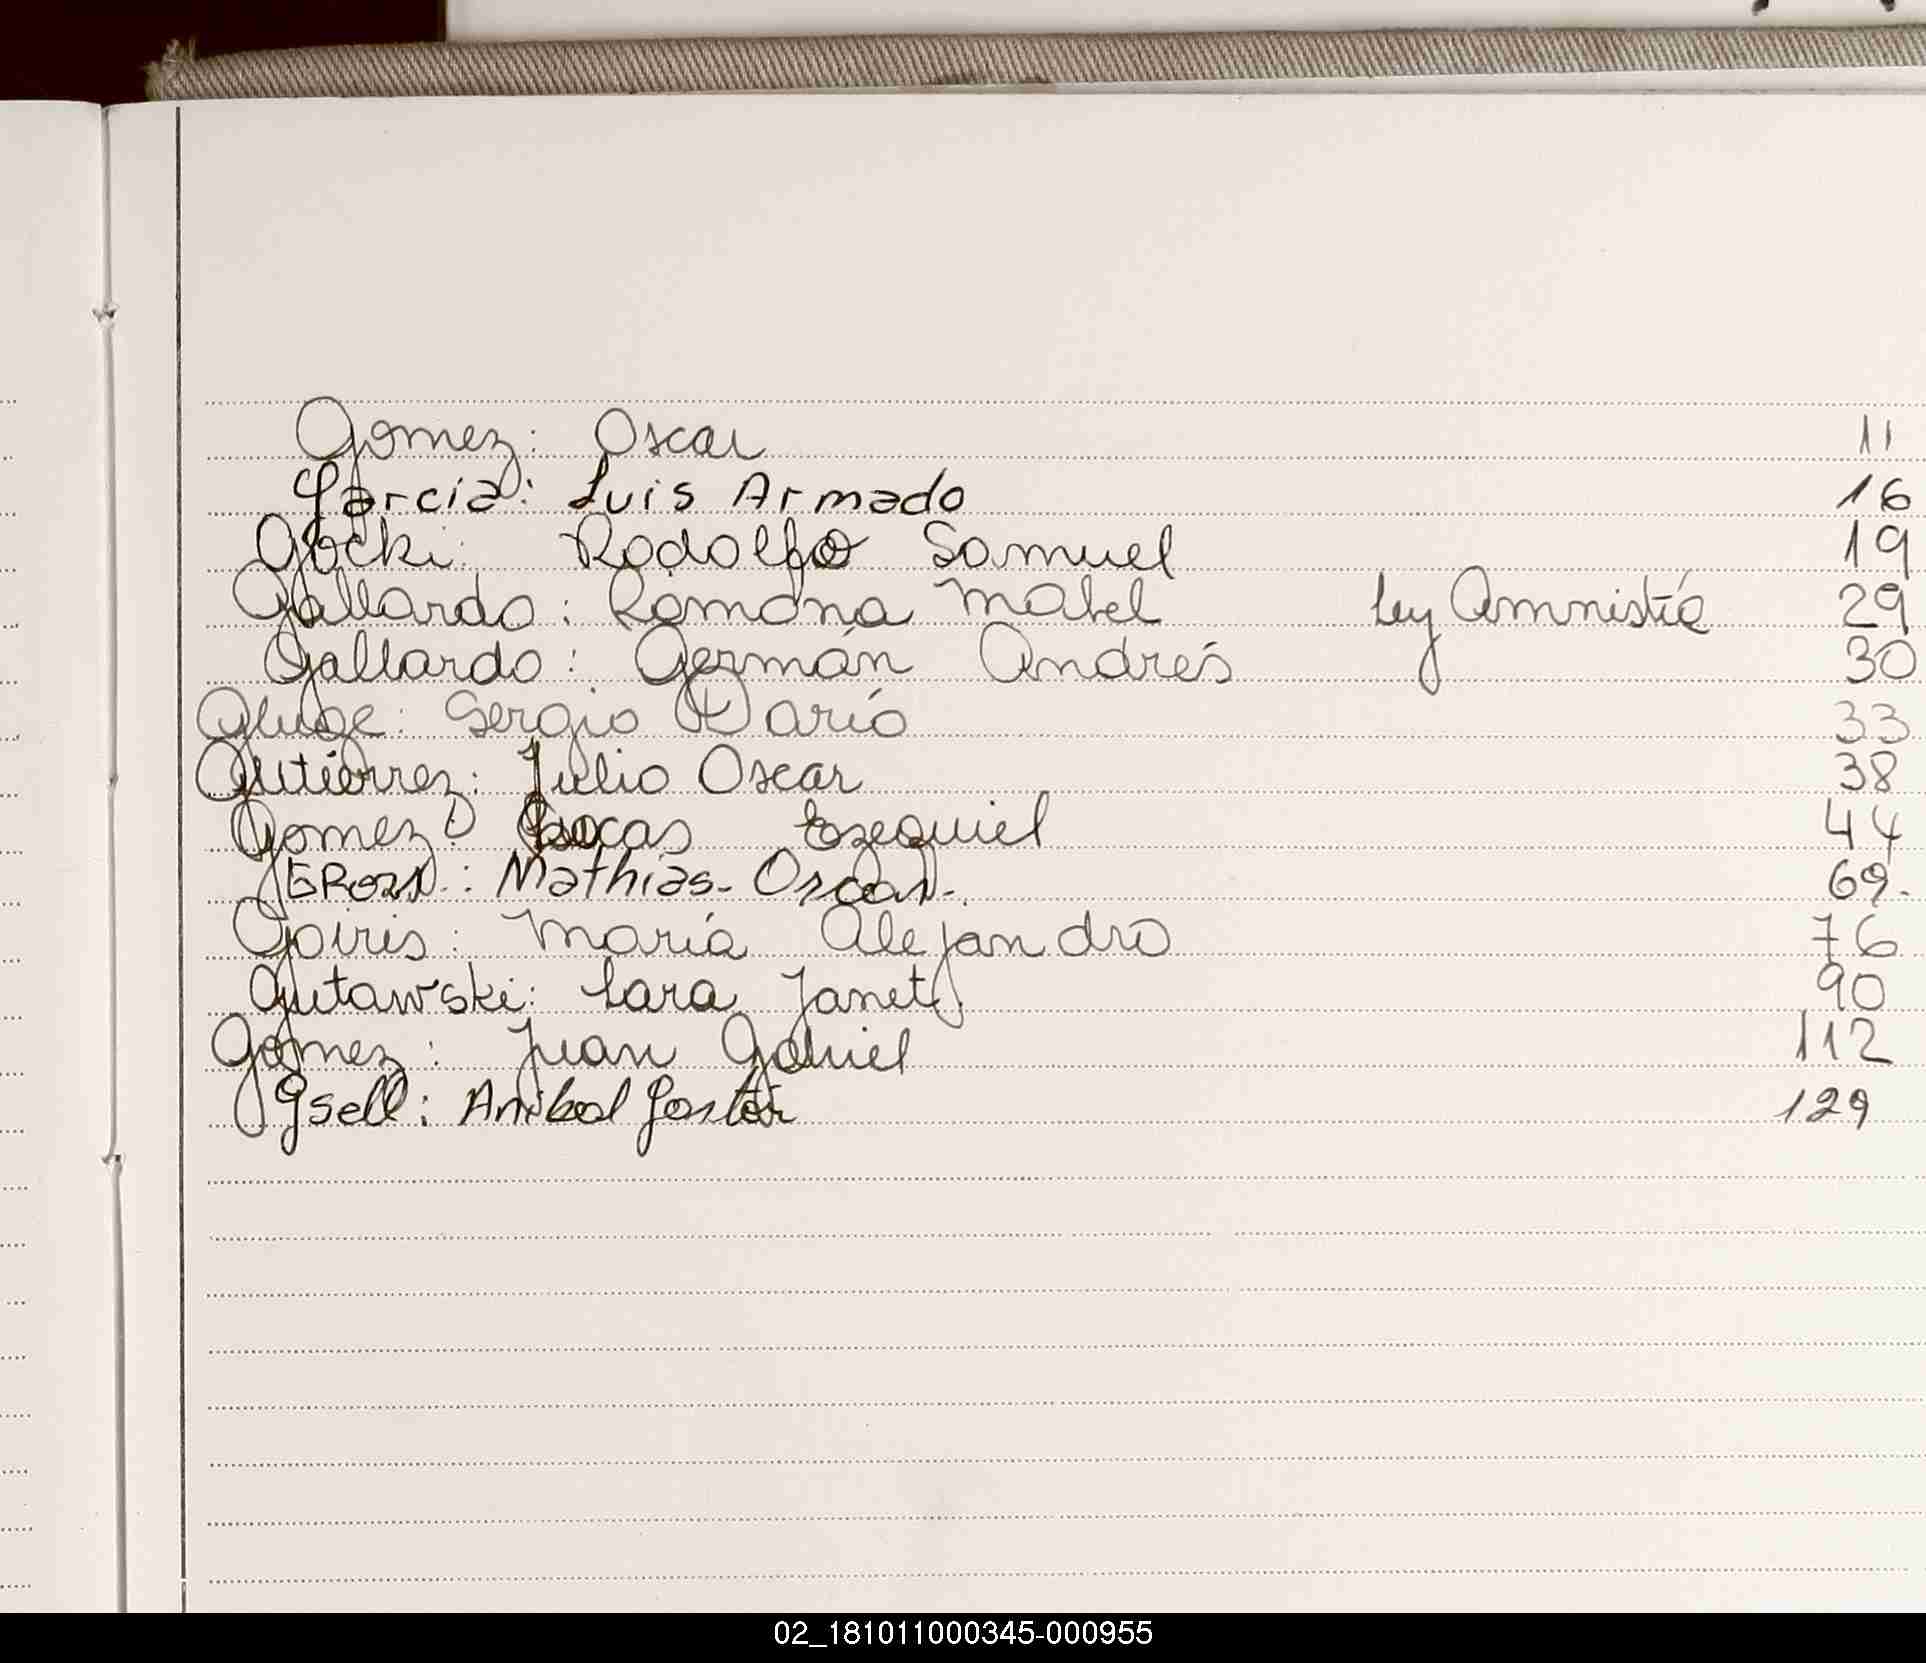 Gomez: Oscar 11
Garcia: Luis Armado 16
Gocki: Rodolfo Samuel 19
Gallardo: Romona Mabel Ley Amnistía 29
Gallardo: Germán Andrés 30
Gluge: Sergio Darío 33
Gutiérrez: Julio Oscar 38
Gomez: Lucas Ezequiel 44
Mathias- Oscar-. 69.
Goiris: María Alejandro 76
Gutawski: Lara Janet. 90
Gomez: Juan Gabriel 112
Gsell: Anibal Gastón 129
02_181011000345-000955